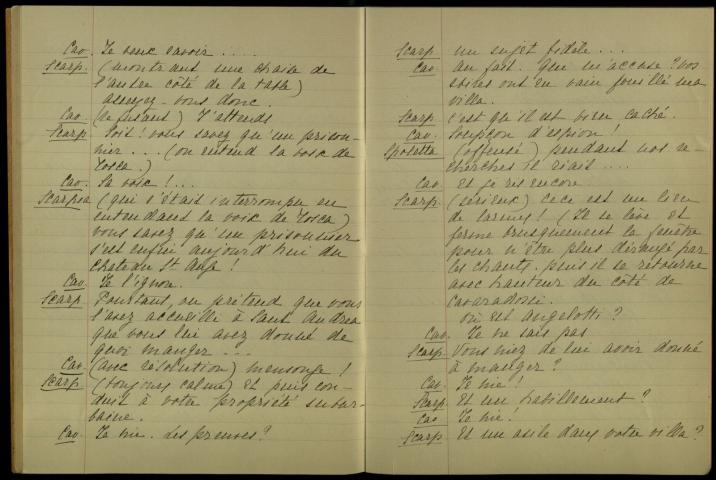 Cav. Je veux savoir ....
Scarp. (montrant une chaise de
l'autre côté de la table)
asseyez-vous donc.
Cav. (le faisant) J'attends
Scarp. Soit! vous savez qu'un prison-
nier ... (on entend la voix de
Tosca.)
Cav. Sa voix! ...
Scarpia (qui s'était interrompu en
entendant la voix de Tosca)
vous savez qu'un prisonnier
s'est enfui aujourd'hui du
Chateau St Ange!
Cav. Je l'ignore.
Scarp Pourtant, on prétend que vous
l'avez accueilli à Sant Andrea
que vous lui avez donné de
quoi manger ...
Cav (avec résolution) mensonge!
Scarp (toujours calme) Et puis con-
duit à votre propriété subur-
baine.
Cav. Je nie. Les preuves?
Scarp un sujet fidèle ...
Cav Au fait. Qui m'accuse? vos
sbires ont en vain fouillé ma
villa.
Scarp. C'est qu'il est bien caché.
Cav. Soupçon d'espion!
Spoletta (offensé) pendant nos re-
cherches il riait ....
Cav. Et je ris encore
Scarp. (sérieux) Ceci est un lieu
de larmes! (Il se lève et
ferme brusquement la fenêtre
pour n'être plus dérangé par
les chants. puis il se retourne
avec hauteur du côté de
Cavaradossi.
où est Angelotti?
Cav. Je ne sais pas
Scarp. Vous niez de lui avoir donné
à manger?
Cav. Je nie!
Scarp Et un habillement?
Cav Je nie!
Scarp. Et un asile dans votre villa?